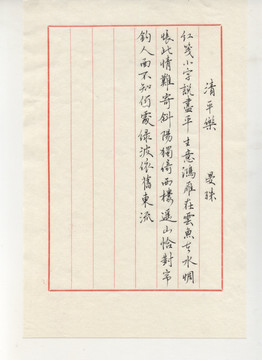 清平樂 晏殊
紅箋小字說盡平生意鴻雁在雲魚在水惆
悵此情難寄斜陽獨倚西樓遙山恰對帘
鈎人面不知何處綠波依舊東流